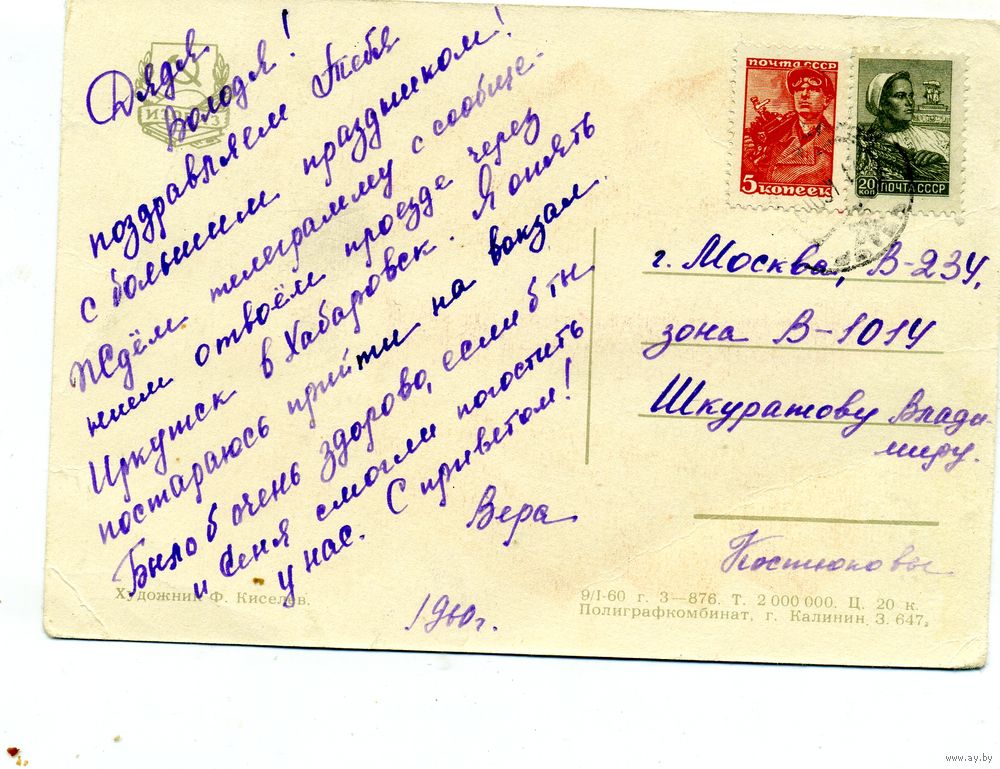 Дядя
Володя!
поздравляем Тебя
с большим праздником!
Ждём телеграмму с сообще-
нием о твоём проезде через
Иркутск в Хабаровск. Я опять
постараюсь прийти на вокзал.
Было б очень здорово, если б ты
и Сеня смогли погостить
у нас. С приветом!
Вера
1960г.
ПОЧТА СССР
5 КОПЕЕК
20 КОП
ПОЧТА СССР
г. Москва, В-234,
зона В-1014
Шкуратову Влади-
миру.
Костюковы
Художник Ф. Киселев.
9/I-60 г. З—876. Т. 2 000 000. Ц. 20 к.
Полиграфкомбинат, г. Калинин. З. 647.
www.ay.by